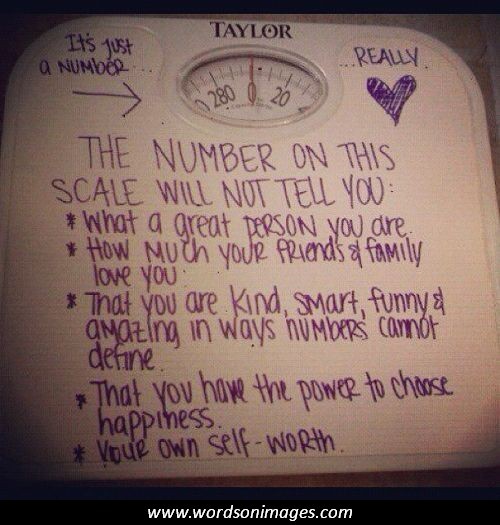 TAYLOR
It's just
a NUMBER...
...REALLY
280 0 20
THE NUMBER ON THIS
SCALE WILL NOT TELL YOU:
* What a great person you are.
* How much your friends & family
love you.
* That you are kind, smart, funny &
amazing in ways numbers cannot
define.
* That you have the power to choose
happiness.
* Your own self-worth.
www.wordsonimages.com